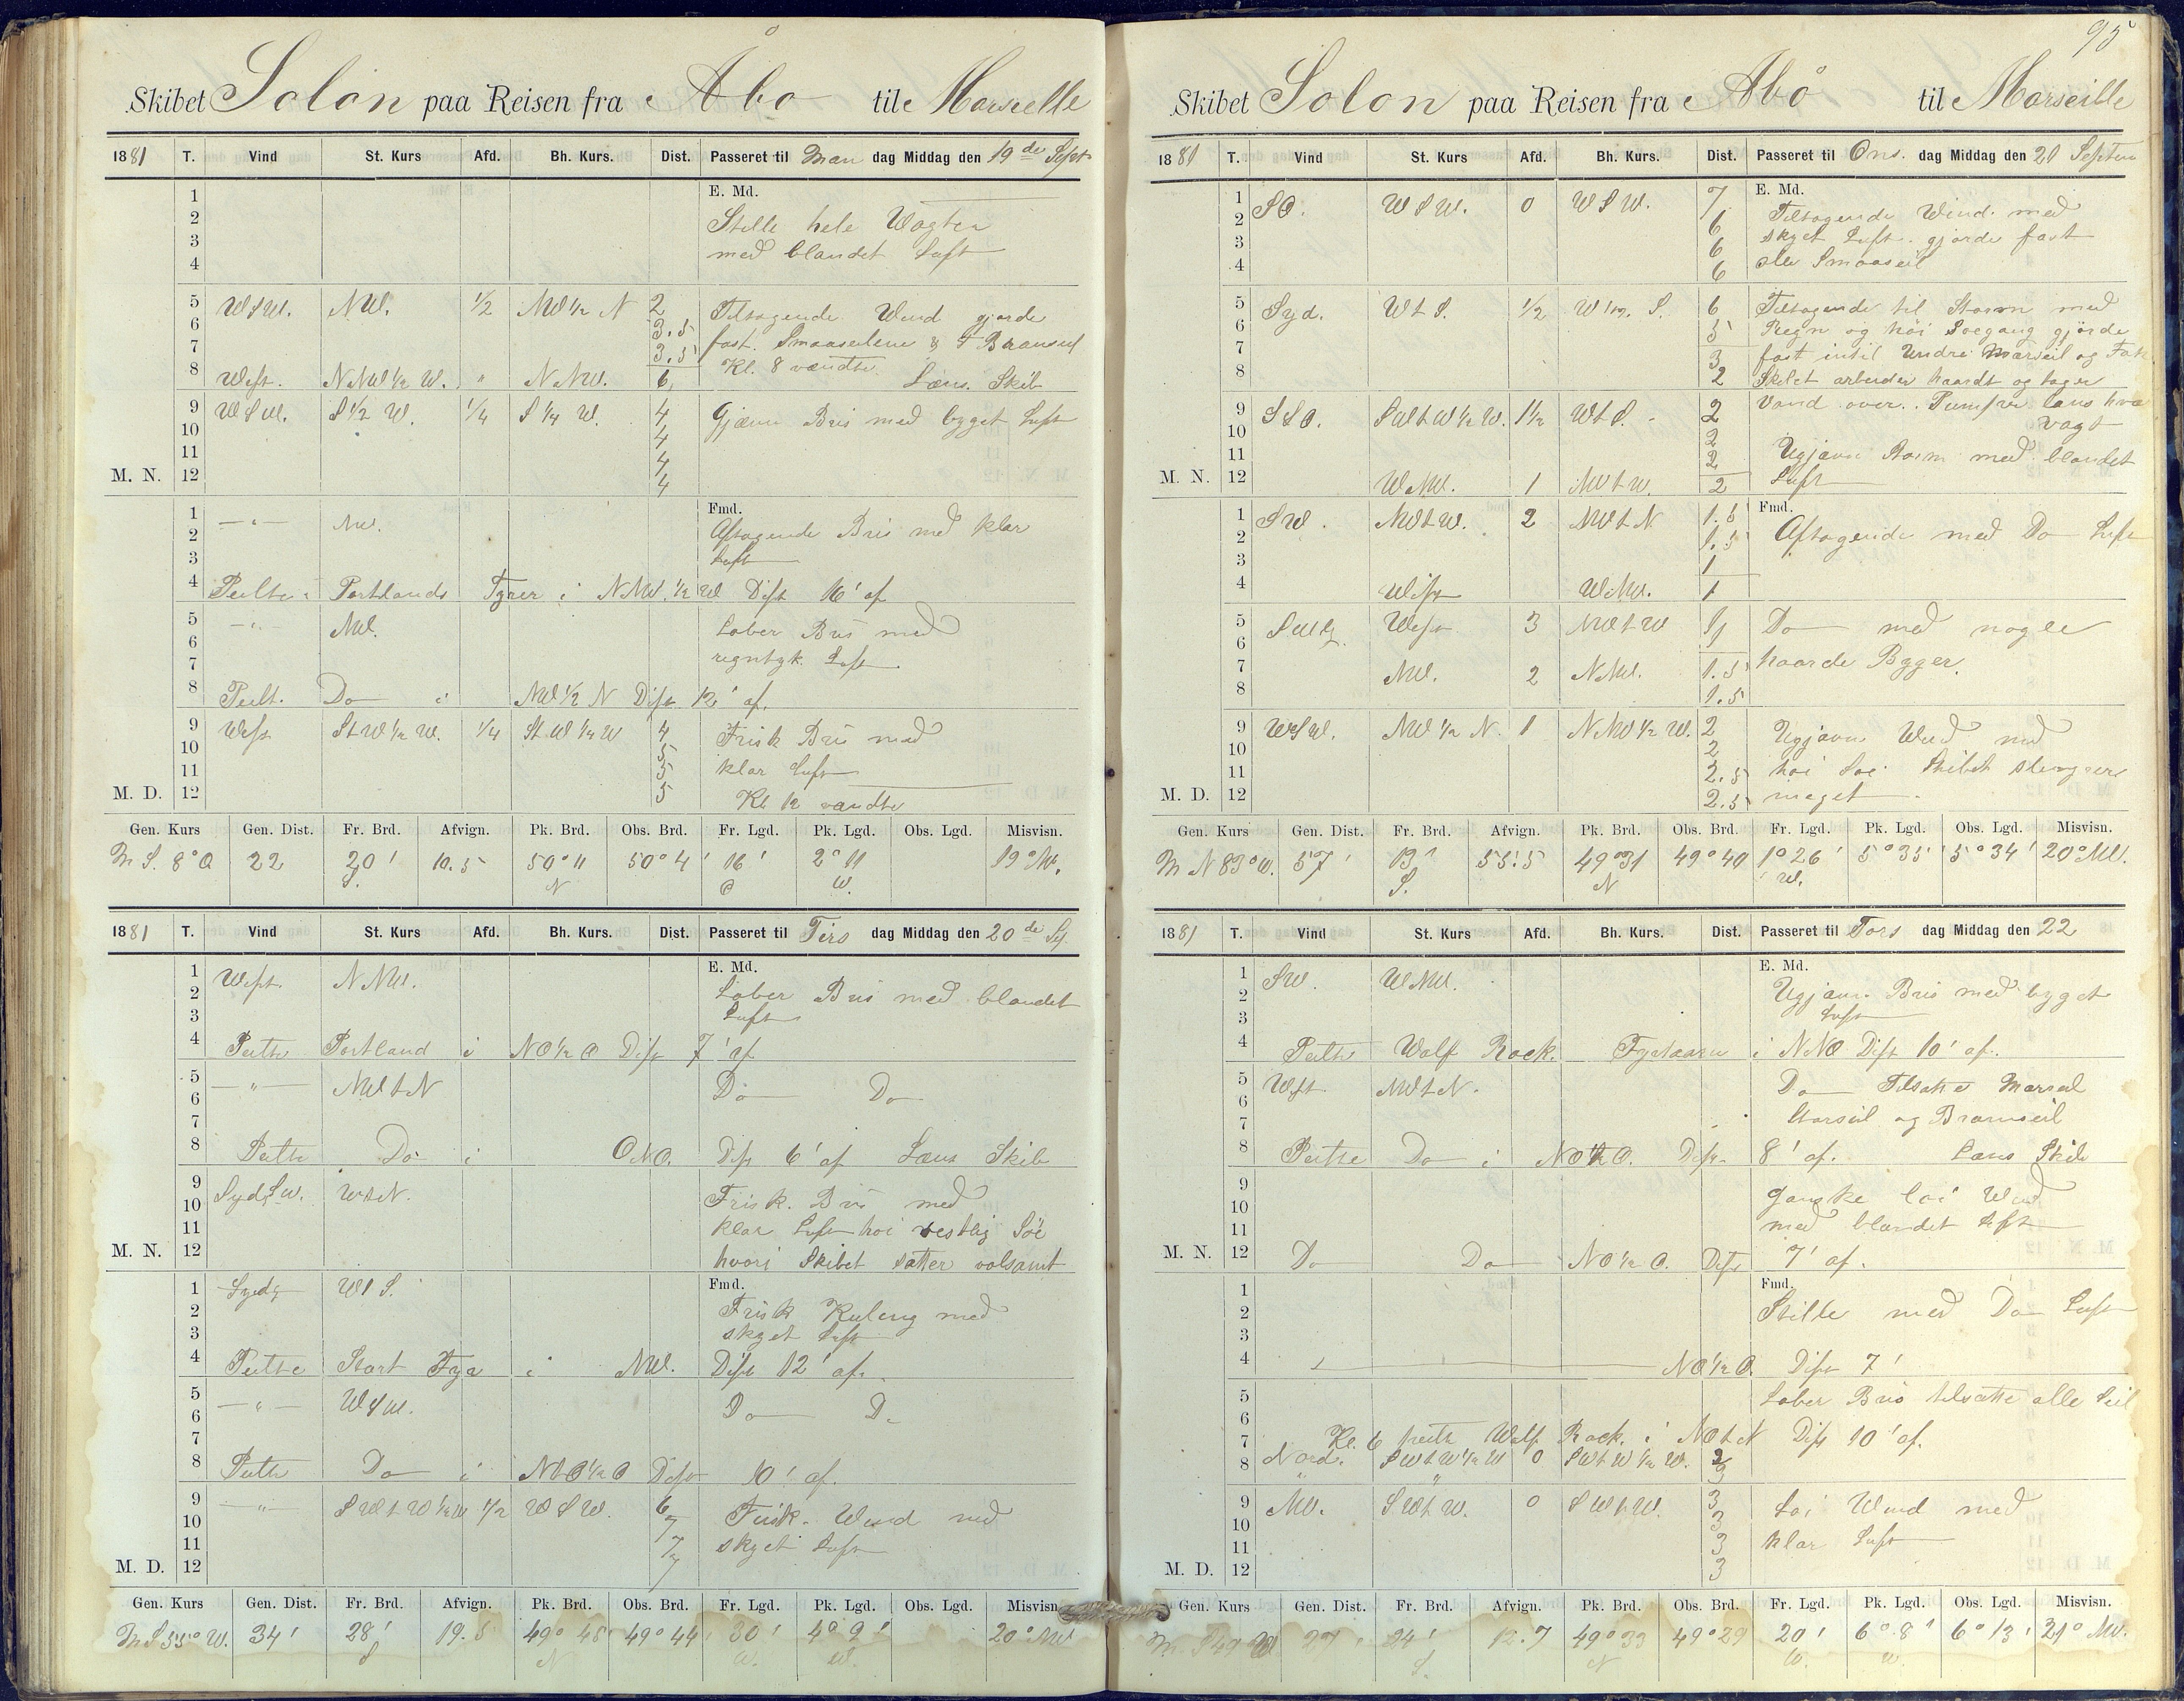 Skibet Solon paa Reisen fra Åbo til Marseille
1881 T. Vind St. Kurs Afd. Bh. Kurs. Dist. Passeret til Man dag Middag den 19de Sept
1 E. Md.
2 Stille hele Vagten
3 med blandet Luft
4
5 WSW. NW. 1/2 NW 1/2 N 2 Tiltagende Wind gjorde
6 3.5 fast Smaaseilene & Bramseil
7 3.5 Kl. 8 vendte
8 West. NNW 1/2 W. " NNW. 6 Læns Skib
9 WSW. S 1/2 W. 1/4 S 1/4 W. 4 Gjævn Bris med byget Luft
10 4
11 4
M. N. 12 4
1 —"— NW. Fmd.
2 Aftagende Bris med klar
3 Luft
4 Peilte Portlands Fyrer i NNW. 1/2 W Dist 16' af
5 —"— NW. Laber Bris med
6 regntyk Luft
7
8 Peilt. Do i NW 1/2 N Dist 12' af.
9 West StW 1/2 W. 1/4 StW 1/4 W 4 Frisk Bris med
10 5 klar Luft
11 5
M. D. 12 5 Kl. 12 vendte
Gen. Kurs Gen. Dist. Fr. Brd. Afvign. Pk. Brd. Obs. Brd. Fr. Lgd. Pk. Lgd. Obs. Lgd. Misvisn.
M S. 8° O 22 20' S. 10.5 50° 11 N 50° 4' 16' O 2° 11 W. 19° NW.
1881 T. Vind St. Kurs Afd. Bh. Kurs. Dist. Passeret til Tirs dag Middag den 20de Sep.
1 West. NNW. E. Md.
2 Laber Bris med blandet
3 Luft
4 Peilte Portland i NO 1/2 O Dist 7' af
5 —"— NWtN Do Do
6
7
8 Peilte Do i ONO. Dist 6' af Læns Skib
9 SydSW. WtN. Frisk Bris med
10 klar Luft hoi vestlig Söe
11 hvori Skibet sætter volsomt
M. N. 12
1 Sydg WtS. Fmd.
2 Frisk Kuling med
3 skyet Luft
4 Peilte Start Fyr i NW. Dist 12' af.
5 —"— WSW. Do Do
6
7
8 Peilte Do i NtO 1/2 O Dist 10' af.
9 —"— SWtW 1/2 W 1/2 WSW. 6 Frisk Wind med
10 7 skyet Luft
11 7
M. D. 12 7
Gen. Kurs Gen. Dist. Fr. Brd. Afvign. Pk. Brd. Obs. Brd. Fr. Lgd. Pk. Lgd. Obs. Lgd. Misvisn.
M S 55° W. 34' 28' S 19.5 49° 48' N 49° 44' 30' W. 4° 9' W. 20° NW
95
Skibet Solon paa Reisen fra Åbo til Marseille
1881 T. Vind St. Kurs Afd. Bh. Kurs. Dist. Passeret til Ons. dag Middag den 21 Septem
1 SO. WSW. 0 WSW. 7 E. Md.
2 6 Tiltagende Vind med
3 6 skyet Luft gjorde fast
4 6 alle Smaaseil
5 Syd. WtS. 1/2 W 1/2 S. 6 Tiltagende til Storm med
6 5 Regn og hoi Soegang gjörde
7 3 fast intil Undre Marseil og Fok
8 2 Skibet arbeider haardt og tager
9 SSO. SWtW 1/2 W. 1 1/2 WtS. 2 Vand over. Pumper læns hver
10 2 vagt
11 2 Ugjævn Storm med blandet
M. N. 12 WNW. 1 NWtW. 2 Luft
1 SW. NWtW. 2 NWtN 1.5 Fmd.
2 1.5 Aftagende med Do Luft
3 1
4 West WNW. 1
5 West 3 NWtW 1 Do med nogle
6 haarde Byger
7 NW. 2 NNW. 1.5
8 1.5
9 WSW. NW 1/2 N. 1 NNW 1/2 W. 2 Ugjævn Wind med
10 2 hoi Soe Skibet slengrer
11 2.5 meget
M. D. 12 2.5
Gen. Kurs Gen. Dist. Fr. Brd. Afvign. Pk. Brd. Obs. Brd. Fr. Lgd. Pk. Lgd. Obs. Lgd. Misvisn.
M N 83° W. 57' 13' S. 55.5 49° 31 N 49° 40 1° 26' W. 5° 35' 5° 34' 20° NW.
1881 T. Vind St. Kurs Afd. Bh. Kurs. Dist. Passeret til Tors dag Middag den 22
1 SW. WNW. E. Md.
2 Ugjævn Bris med byget
3 Luft
4 Peilte Wolf Rock Fyrtaarn i NNO Dist 10' af.
5 West NWtN. Do Tilsatte Marseil
6 Storseil og Bramseil
7
8 Peilte Do i NO 1/2 O. Dist 8' af. Læns Skib
9 Ganske loi Wind
10 med blandet Luft
11
M. N. 12 Do Do NO 1/2 O. Dist 7' af.
1 Fmd.
2 Stille med Do Luft
3
4 NO 1/2 O. Dist 7'
5 Laber Bris tilsatte alle Seil
6
7 Kl. 6 peilte Wolf Rock i NOtN Dist 10' af.
8 Nord. SWtW 1/2 W 0 SWtW 1/2 W. 3
9 NW. SWtW. 0 SWtW. 3 Loi Wind med
10 3 klar Luft
11 3
M. D. 12 3
Gen. Kurs Gen. Dist. Fr. Brd. Afvign. Pk. Brd. Obs. Brd. Fr. Lgd. Pk. Lgd. Obs. Lgd. Misvisn.
M S 27' 24' S. 12.7 49° 33 N 49° 29 20' W. 6° 8' W. 6° 13' 21° NW.